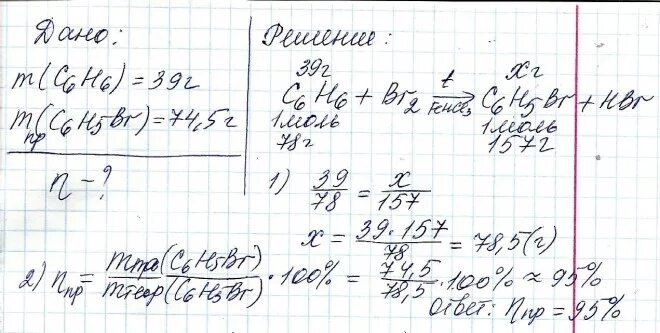 Дано:
m(C₆H₆) = 39г
mпр(C₆H₅Br) = 74,5г
η – ?
Решение:
39г хг
C₆H₆ + Br₂ t→ C₆H₅Br + HBr
1моль 1моль
78г 157г
1) 39/78 = x/157
x = 39·157/78 = 78,5(г)
2) ηпр = mпр(C₆H₅Br)/mтеор(C₆H₅Br) · 100% = 74,5/78,5 · 100% ≈ 95%
Ответ: ηпр = 95%